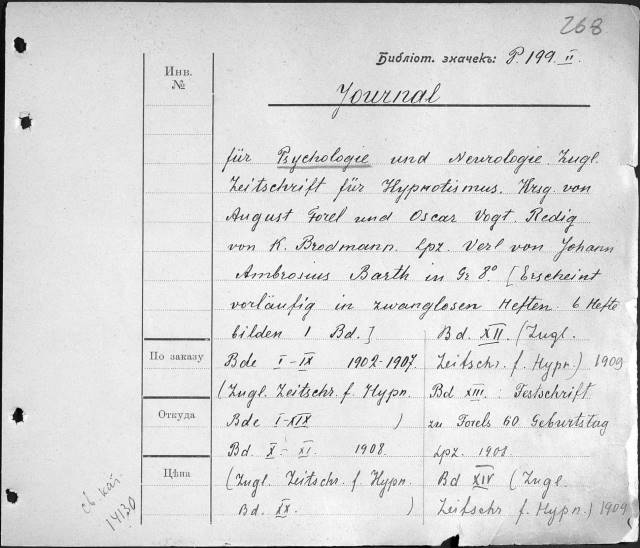 268
Библіот. значекъ: P. 199. II.
Инв.
№
Journal
für Psychologie und Neurologie. Zugl.
Zeitschrift für Hypnotismus. Hrsg. von
August Forel und Oscar Vogt. Redig
von K. Brodmann. Lpz. Verl von Johann
Ambrosius Barth in Gr 8° [Erscheint
vorläufig in zwanglosen Heften. 6 Hefte
bilden 1 Bd.]
По заказу
Bde I-IX 1902-1907
(Zugl. Zeitschr. f. Hypn.
Откуда
Bde I-XIX )
Bd. X-XI. 1908.
Цѣна
(Zugl. Zeitschr. f. Hypn.
Bd. XX. )
Bd. XII. (Zugl.
Zeitschr. f. Hypn.) 1909
Bd XIII. : Festschrift
zu Forels 60 Geburtstag
Lpz. 1908.
Bd XIV (Zugl.
Zeitschr f. Hypn.) 1909
св. кат.
14130